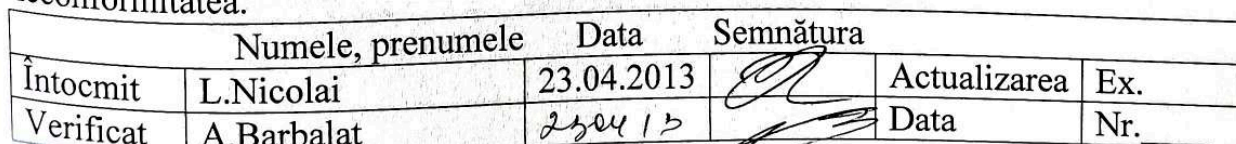 Numele, prenumele Data Semnătura
Întocmit L.Nicolai 23.04.2013 Actualizarea Ex.
Verificat A.Barbalat 230413 Data Nr.